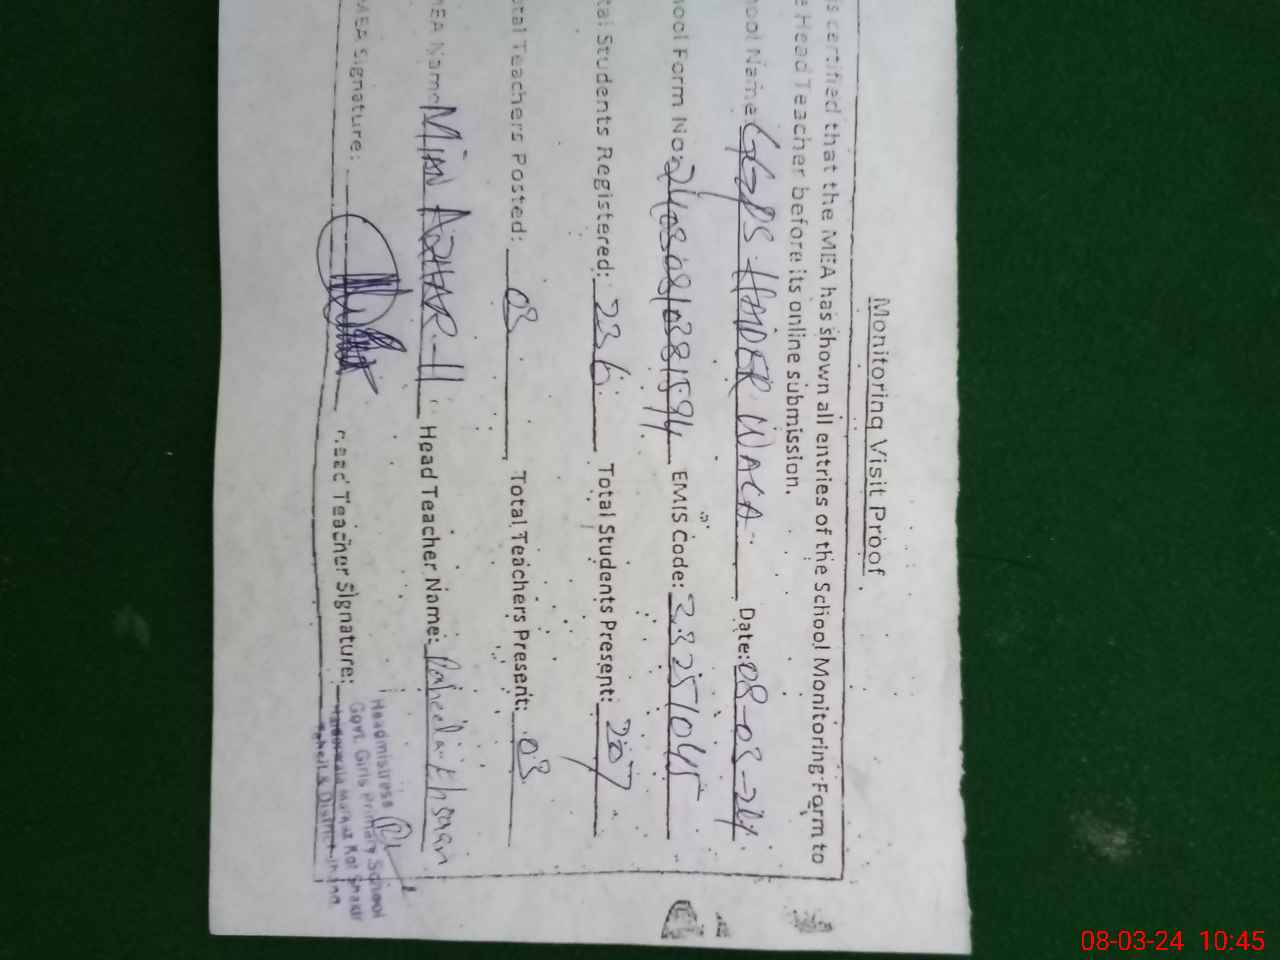 Monitoring Visit Proof
is certified that the MEA has shown all entries of the School Monitoring Form to
e Head Teacher before its online submission.
ool Name: GGPS HAIDER WALA Date: 08-03-24
ool Form No: EMIS Code: 33251045
tal Students Registered: 236 Total Students Present: 207
otal Teachers Posted: 03 Total Teachers Present: 03
MEA Name MIAN AZHAR-II Head Teacher Name: Raheela
MEA Signature: Head Teacher Signature:
Headmistress
Govt. Girls Primary School
Markaz Kot Shakir
Tehsil & District
08-03-24 10:45